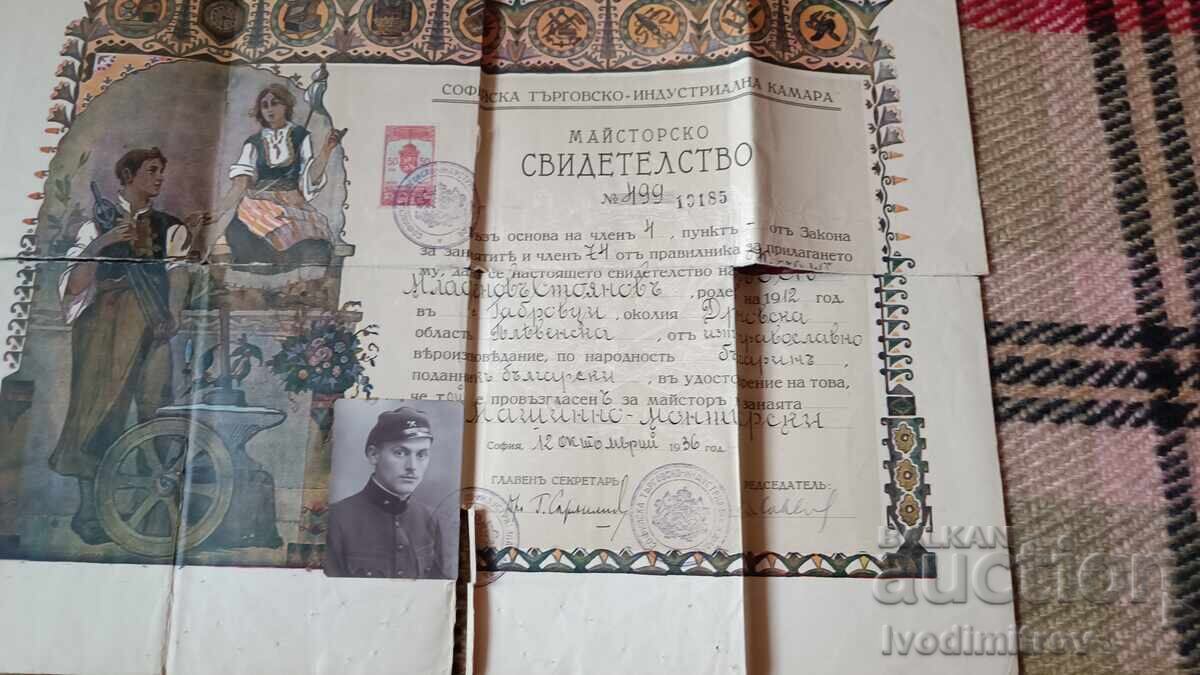 СОФИЙСКА ТЪРГОВСКО-ИНДУСТРИАЛНА КАМАРА
МАЙСТОРСКО
СВИДЕТЕЛСТВО
№ 499 10185
основа на членъ 4, пунктъ - отъ Закона
за занаятитѣ и членъ 74 отъ правилника
му, се настоящето свидетелство на
Младеновъ Стояновъ, роде на 1912 год.
въ Габровци, околия
область Плѣвенска, отъ изт. православно
вѣроизповѣдание, по народность българинъ,
поданикъ български, въ удостоение на това,
че той е провъзгласенъ за майсторъ занаята
Машинно-Монтьрски
София, 12 октомврий 1936 год.
ГЛАВЕНЪ СЕКРЕТАРЬ: РЕДСЕДАТЕЛЬ:
50 50
BALKAN
auction
Ivodimitrov